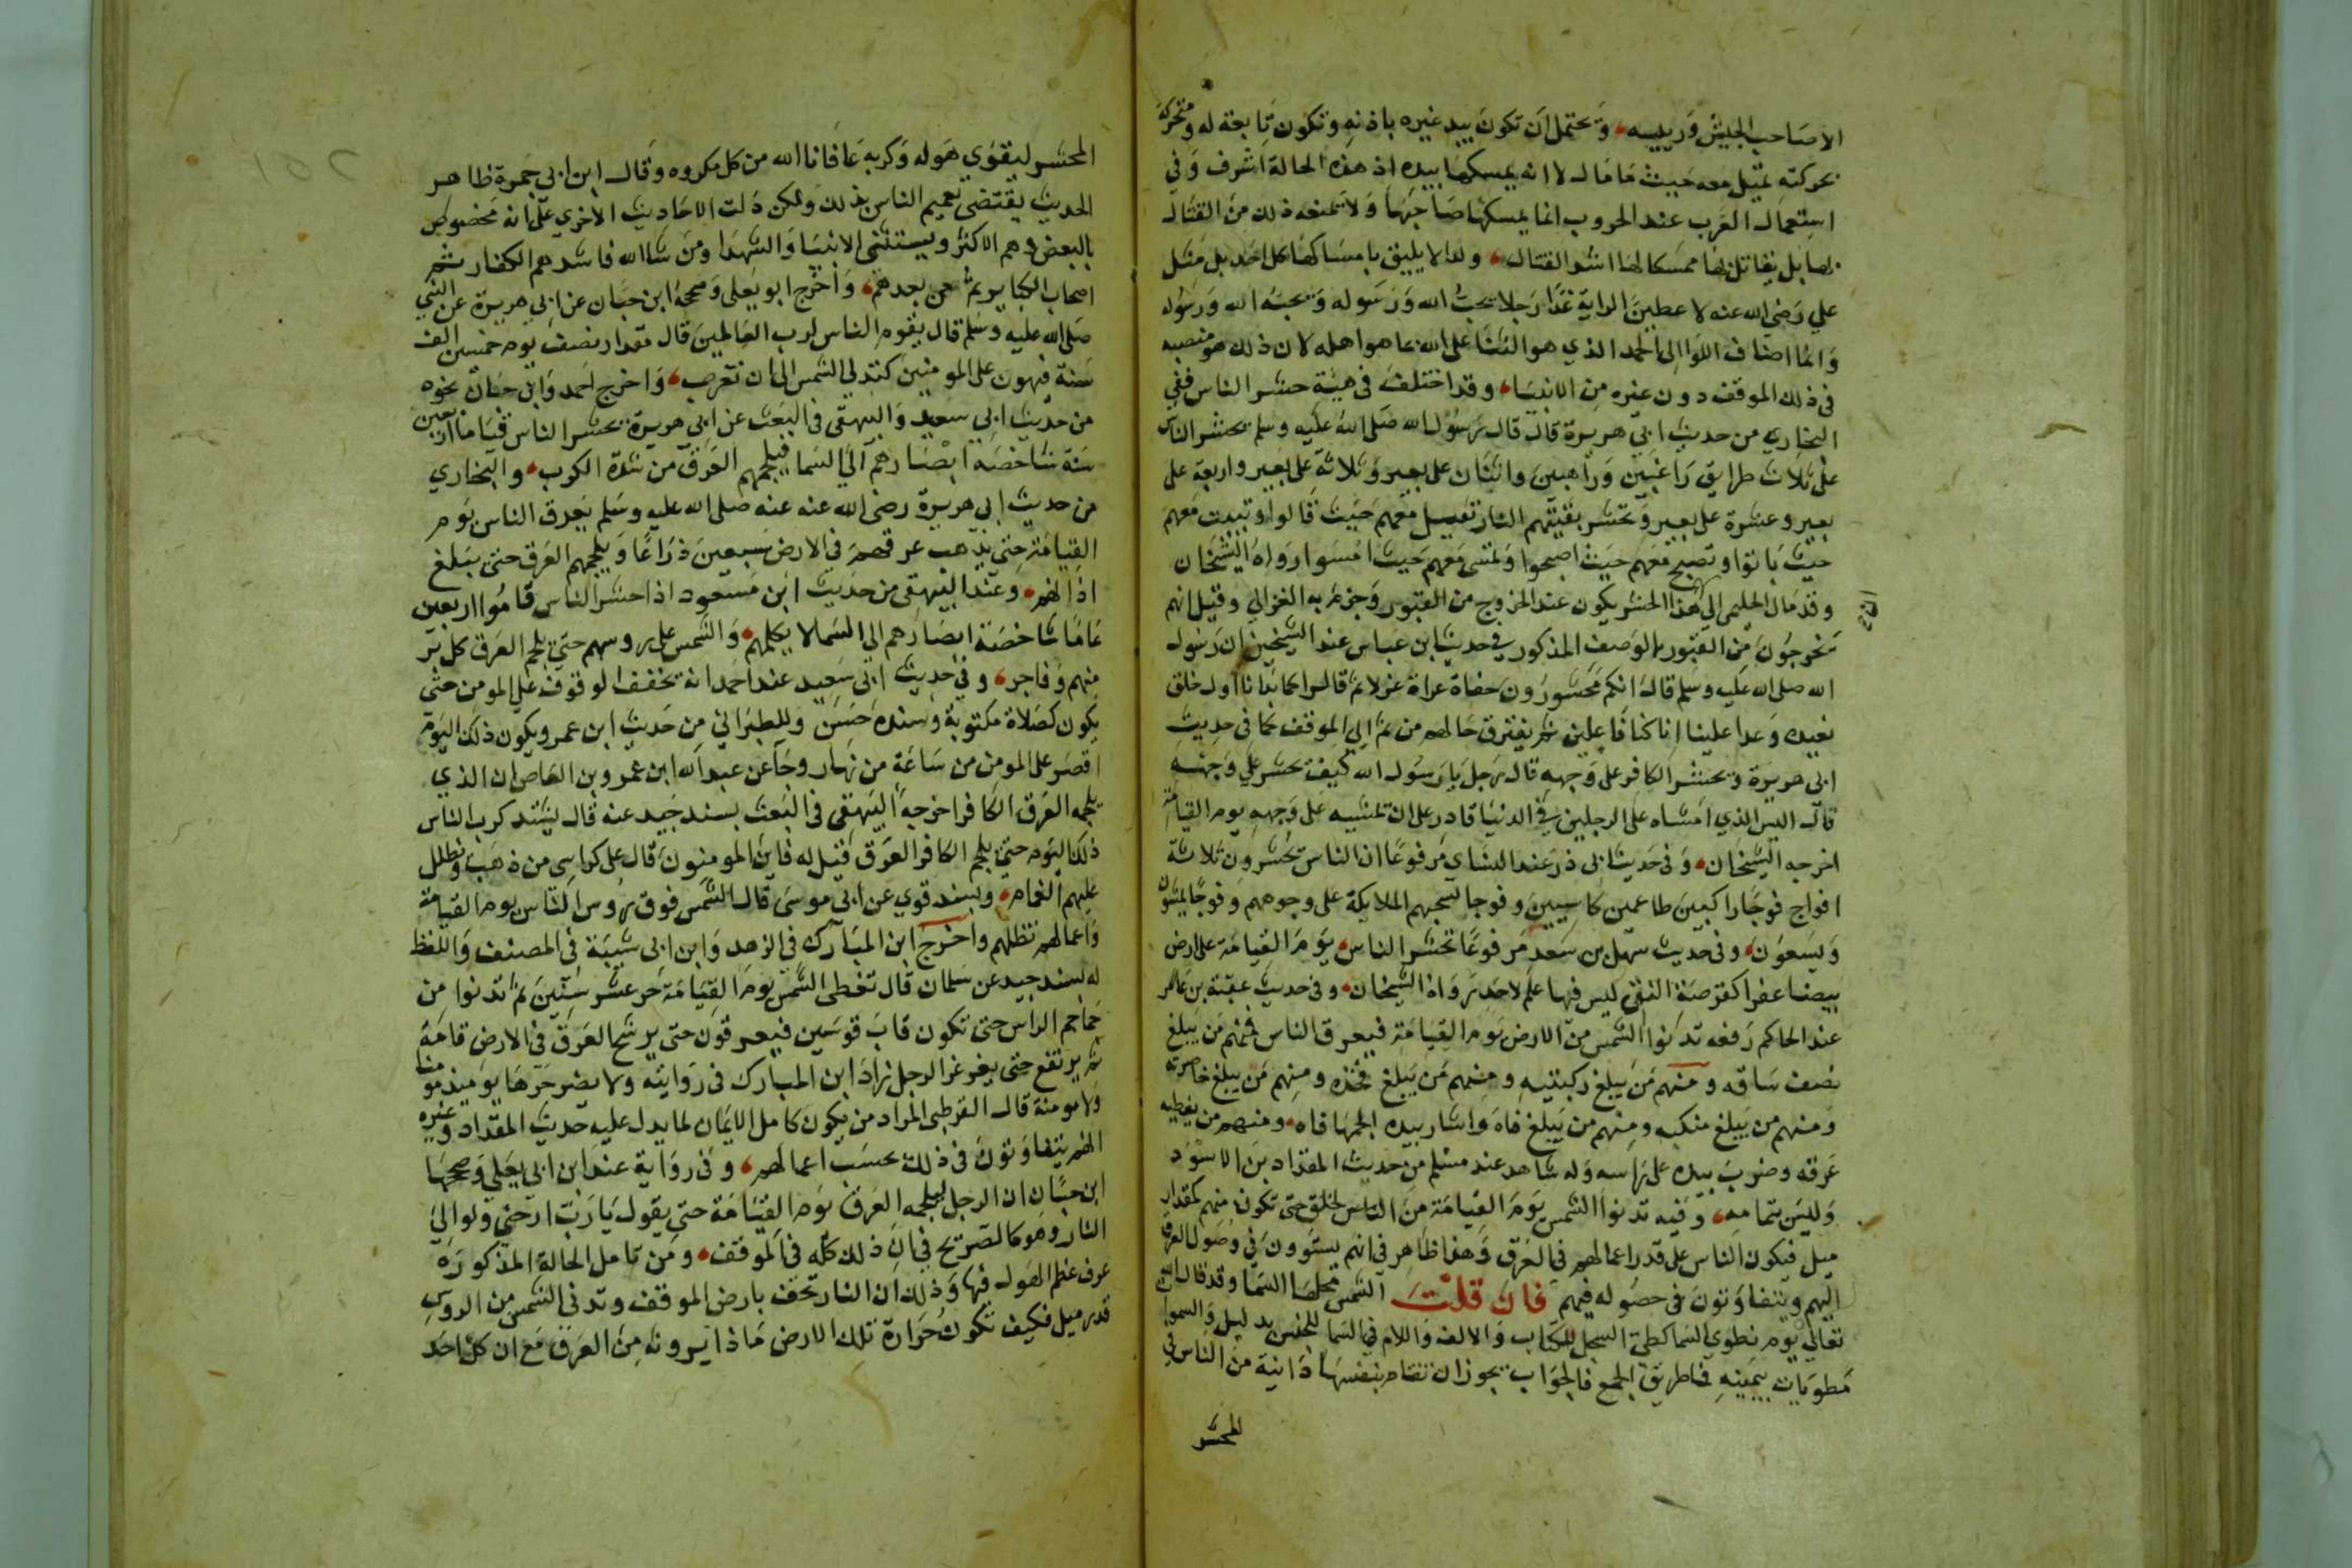 الاصاحب الجيش ورييسه، ويحتمل ان تكون بيد غيره باذنه وتكون تابعة له ومتحركة
بحركته تميل معه حيث ما مال لا انه يمسكها بيده اذ هذه الحالة اشرف وفي
استعمال العرب عند الحروب انما يمسكها صاحبها ولا يمنعه ذلك من القتال
بها بل يقاتل بها ممسكا لها اشد القتال، ولذا لا يليق بامساكها كل احد بل مثل
علي رضي الله عنه لاعطين الراية غدا رجلا يحب الله ورسوله ويحبه الله ورسوله
وانما اضاف اللوا الى الحمد الذي هو الثنا على الله بما هو اهله لان ذلك هو منصبه
في ذلك الموقف دون غيره من الانبيا، وقد اختلف في هيئة حشر الناس ففي
البخاري من حديث ابي هريرة قال قال رسول الله صلى الله عليه وسلم يحشر الناس
على ثلاث طرايق راغبين وراهبين واثنان على بعير وثلاثة على بعير واربعة على
بعير وعشرة على بعير وتحشر بقيتهم النار تقيل معهم حيث قالوا وتبيت معهم
حيث باتوا وتصبح معهم حيث اصبحوا وتمسى معهم حيث امسوا رواه الشيخان
وقد مال الحليمي الى هذا الحشر يكون عند الخروج من القبور وجزم به الغزالي وقيل انهم
يخرجون من القبور بالوصف المذكور في حديث ابن عباس عند الشيخين ان رسول
الله صلى الله عليه وسلم قال انكم محشورون حفاة عراة غرلا ثم قال كما بدانا اول خلق
نعيده وعدا علينا انا كنا فاعلين ثم يفترق حالهم من ثم الى الموقف كما في حديث
ابي هريرة ويحشر الكافر على وجهه قال رجل يا رسول الله كيف يحشر على وجهه
قال اليس الذي امشاه على الرجلين في الدنيا قادر على ان يمشيه على وجهه يوم القيامة
اخرجه الشيخان، وفي حديث ابي ذر عند النساي مرفوعا ان الناس يحشرون ثلاثة
افواج فوجا راكبين طاعمين كاسيين وفوجا تسحبهم الملايكة على وجوههم وفوجا يمشون
ويسعون، وفي حديث سهل بن سعد مرفوعا تحشر الناس يوم القيامة على ارض
بيضا عفرا كقرصة النقي ليس فيها علم لاحد رواه الشيخان، وفي حديث عقبة بن عامر
عند الحاكم رفعه تدنوا الشمس من الارض يوم القيامة فيعرق الناس فمنهم من يبلغ
نصف ساقه ومنهم من يبلغ ركبتيه ومنهم من يبلغ فخذه ومنهم من يبلغ خاصرته
ومنهم من يبلغ منكبه ومنهم من يبلغ فاه واشار بيده الجمها فاه، ومنهم من يغطيه
عرقه وضرب بيده على راسه وله شاهد عند مسلم من حديث المقداد بن الاسود
وليس بتمامه، وفيه تدنوا الشمس يوم القيامة من الناس الخلق حتى تكون منهم كمقدار
ميل فيكون الناس على قدر اعمالهم في العرق وهذا ظاهر في انهم يستوون في وصول العرق
اليهم ويتفاوتون في حصوله فيهم فان قلت الشمس محلها السما وقد قال الله
تعالى يوم نطوي السما كطي السجل للكتاب والالف واللام في السما للجنس بدليل والسموات
مطويات بيمينه فما طريق الجمع فالجواب يجوز ان تقام بنفسها دانية من الناس في
المحشر
المحشر ليقوى هوله وكربه عافانا الله من كل مكروه وقال ابن ابي جمرة ظاهر
الحديث يقتضي تعميم الناس بذلك ولكن دلت الاحاديث الاخرى على انه مخصوص
بالبعض وهم الاكثر ويستثنى الانبيا والشهدا ومن شا الله فاشدهم الكفار ثم
اصحاب الكباير ثم من بعدهم، واخرج ابو يعلى وصححه ابن حبان عن ابي هريرة عن النبي
صلى الله عليه وسلم قال يقوم الناس لرب العالمين قال مقدار نصف يوم من خمسين الف
سنة فيهون على المومنين كتدلي الشمس الى ان تغرب، واخرج احمد وابن حبان نحوه
من حديث ابي سعيد والبيهقى في البعث عن ابي هريرة يحشر الناس قياما اربعين
سنة شاخصة ابصارهم الى السما فيلجمهم العرق من شدة الكرب، والبخاري
من حديث ابي هريرة رضى الله عنه عنه صلى الله عليه وسلم يعرق الناس يوم
القيامة حتى يذهب عرقهم في الارض سبعين ذراعا ويلجمهم العرق حتى يبلغ
اذانهم، وعند البيهقى من حديث ابن مسعود اذا حشر الناس قاموا اربعين
عاما شاخصة ابصارهم الى السما لا يكلمهم، والشمس على روسهم حتى يلجم العرق كل بر
منهم وفاجر، وفي حديث ابي سعيد عند احمد انه يخفف الوقوف على المومن حتى
يكون كصلاة مكتوبة وسنده حسن وللطبراني من حديث ابن عمر ويكون ذلك اليوم
اقصر على المومن من ساعة من نهار وجا عن عبد الله ابن عمرو بن العاص ان الذي
يلجمه العرق الكافر اخرجه البيهقى في البعث بسند جيد عنه قال يشتد كرب الناس
ذلك اليوم حتى يلجم الكافر العرق قيل له فاين المومنون قال على كراسى من ذهب وتظلل
عليهم الغمام، وبسند قوي عن ابي موسى قال الشمس فوق روس الناس يوم القيامة
واعمالهم تظلهم واخرج ابن المبارك في الزهد وابن ابي شيبة في المصنف واللفظ
له بسند جيد عن سلمان قال تعطى الشمس يوم القيامة حر عشر سنين ثم تدنوا من
جماجم الراس حتى تكون قاب قوسين فيعرقون حتى يرشح العرق في الارض قامة
ثم يرتفع حتى يغرغر الرجل زاد ابن المبارك في روايته ولا يضر حرها يوميذ مومنا
ولا مومنة قال القرطبى المراد من يكون كامل الايمان لما يدل عليه حديث المقداد وغيره
انهم يتفاوتون في ذلك بحسب اعمالهم، وفي رواية عند ابن ابي يعلى وصححها
ابن حبان ان الرجل ليلجمه العرق يوم القيامة حتى يقول يا رب ارحني ولو الى
النار وهو كالصريح في ان ذلك كله في الموقف، ومن تامل الحالة المذكورة
عرف عظم الهول فيها وذلك ان النار تحف بارض الموقف وتدنى الشمس من الروس
قدر ميل فكيف تكون حرارة تلك الارض ماذا يرونه من العرق مع ان كل احد